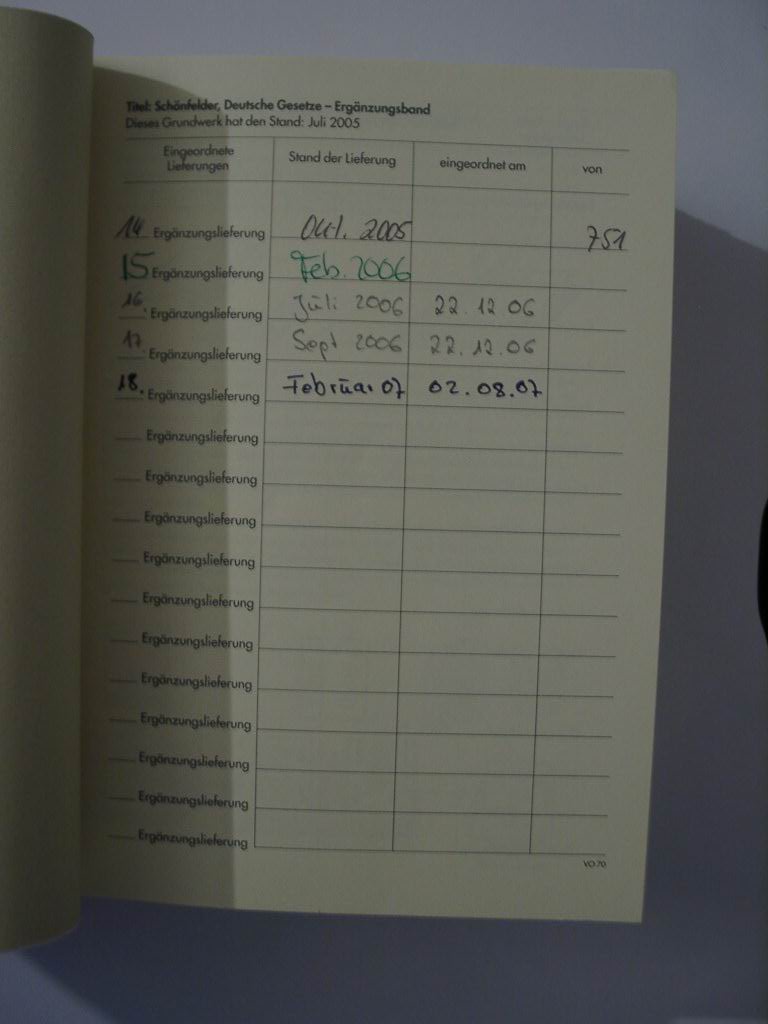 Titel: Schönfelder, Deutsche Gesetze – Ergänzungsband
Dieses Grundwerk hat den Stand: Juli 2005
Eingeordnete Lieferungen Stand der Lieferung eingeordnet am von
14 Ergänzungslieferung Okt. 2005 751
15 Ergänzungslieferung Feb. 2006
16. Ergänzungslieferung Juli 2006 22.12.06
17. Ergänzungslieferung Sept 2006 22.12.06
18. Ergänzungslieferung Februar 07 02.08.07
Ergänzungslieferung
Ergänzungslieferung
Ergänzungslieferung
Ergänzungslieferung
Ergänzungslieferung
Ergänzungslieferung
Ergänzungslieferung
Ergänzungslieferung
Ergänzungslieferung
Ergänzungslieferung
Ergänzungslieferung
VO 70